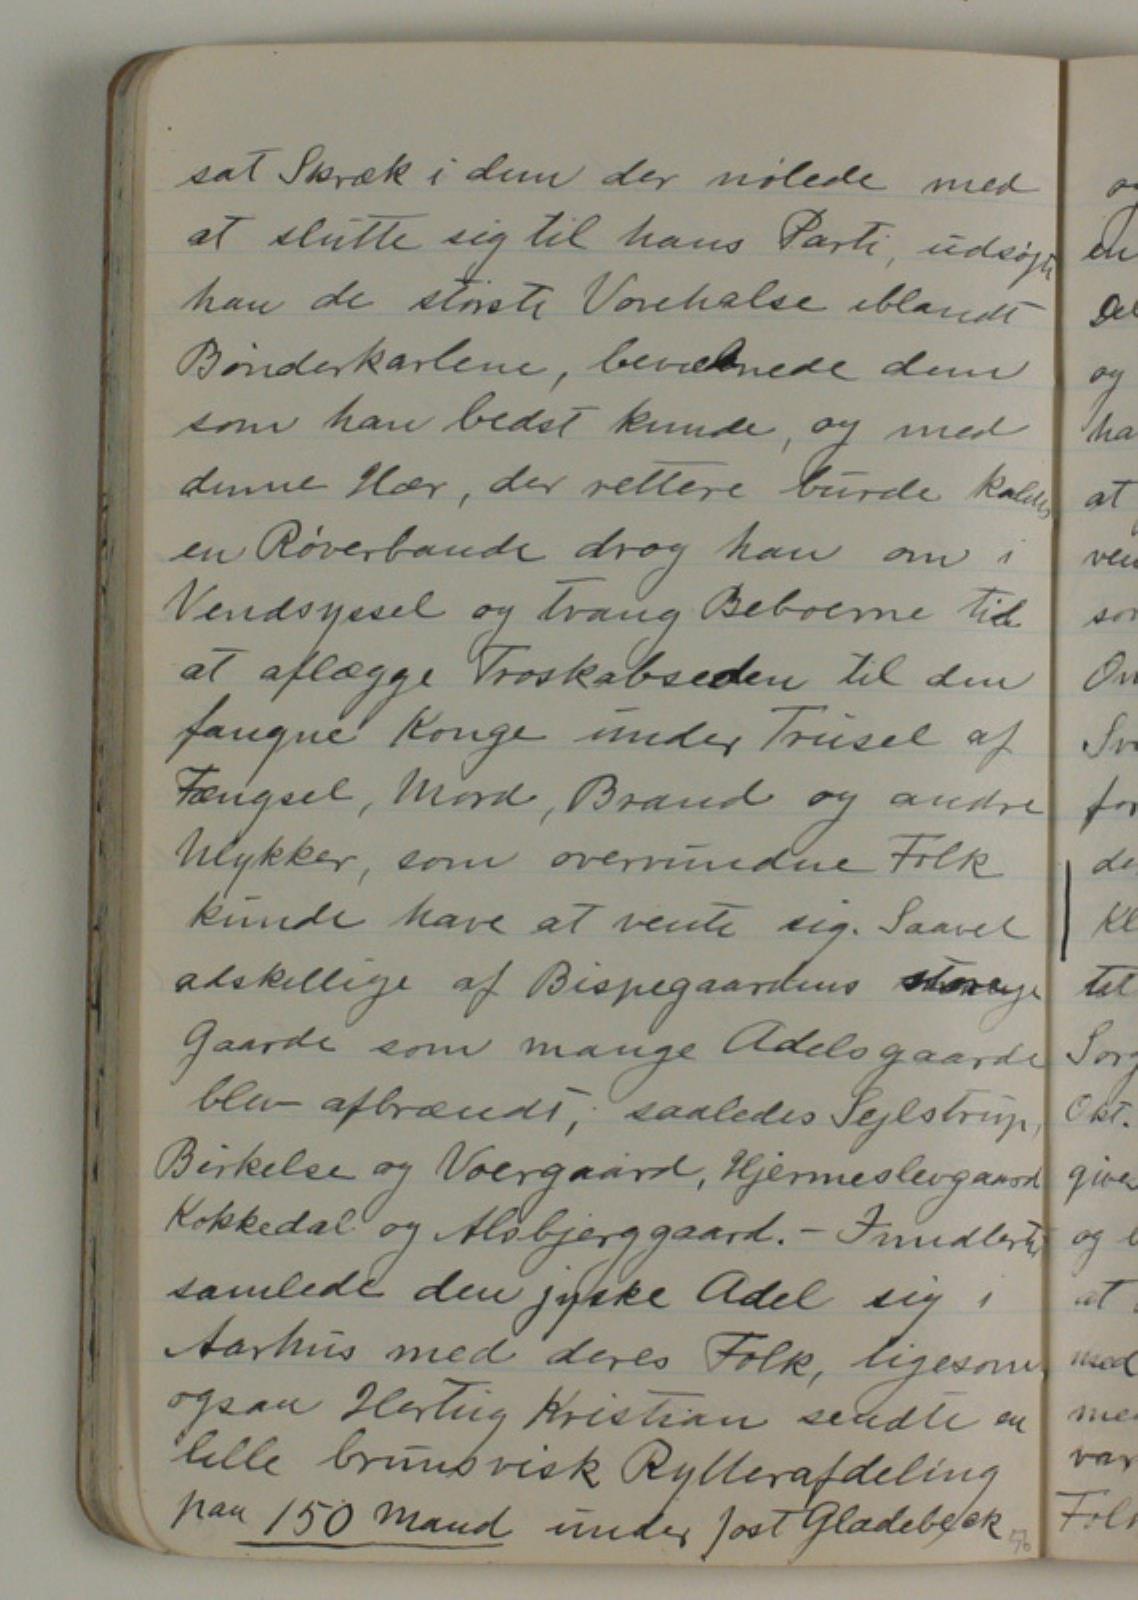 sat Skræk i dem der nølede med
at slutte sig til hans Parti, udsøgte
han de største Vovehalse iblandt
Bønderkarlene, bevæbnede dem
som han bedst kunde, og med
denne Hær, der rettere burde kaldes
en Røverbande drog han om i
Vendsyssel og tvang Beboerne til
at aflægge Troskabseden til den
fangne Konge under Trusel af
Fængsel, Mord, Brand og andre
Ulykker, som overvundne Folk
kunde have at vente sig. Saavel
adskellige af Bispegaardens
Gaarde som mange Adelsgaarde
blev afbrændt; saaledes Sejlstrup,
Birkelse og Voergaard, Hjermeslevgaard
Kokkedal og Alsbjerggaard. - Imidlertid
samlede den jyske Adel sig i
Aarhus med deres Folk, ligesom
ogsaa Hertug Kristian sendte en
lille brunsvisk Rytterafdeling
paa 150 Mand under Jost Gladebeck
56